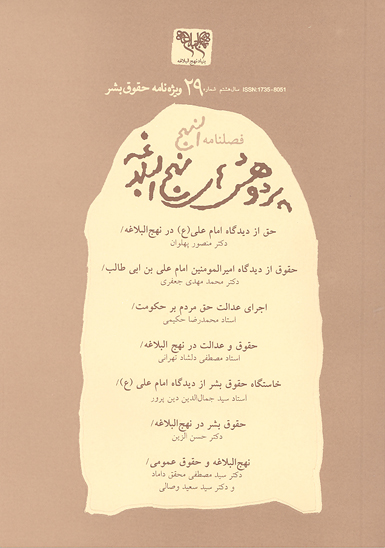 بنیاد نهج‌البلاغه
ISSN:1735-8051 سال هشتم شماره ۲۹ ویژه‌نامه حقوق بشر
فصلنامه النهج
پژوهش‌های نهج البلاغه
حق از دیدگاه امام علی(ع) در نهج‌البلاغه/
دکتر منصور پهلوان
حقوق از دیدگاه امیرالمومنین امام علی بن ابی طالب/
دکتر محمد مهدی جعفری
اجرای عدالت حق مردم بر حکومت/
استاد محمدرضا حکیمی
حقوق و عدالت در نهج البلاغه/
استاد مصطفی دلشاد تهرانی
خاستگاه حقوق بشر از دیدگاه امام علی (ع)/
استاد سید جمال‌الدین دین پرور
حقوق بشر در نهج‌البلاغه/
دکتر حسن الزین
نهج‌البلاغه و حقوق عمومی/
دکتر سید مصطفی محقق داماد
و دکتر سید سعید وصالی